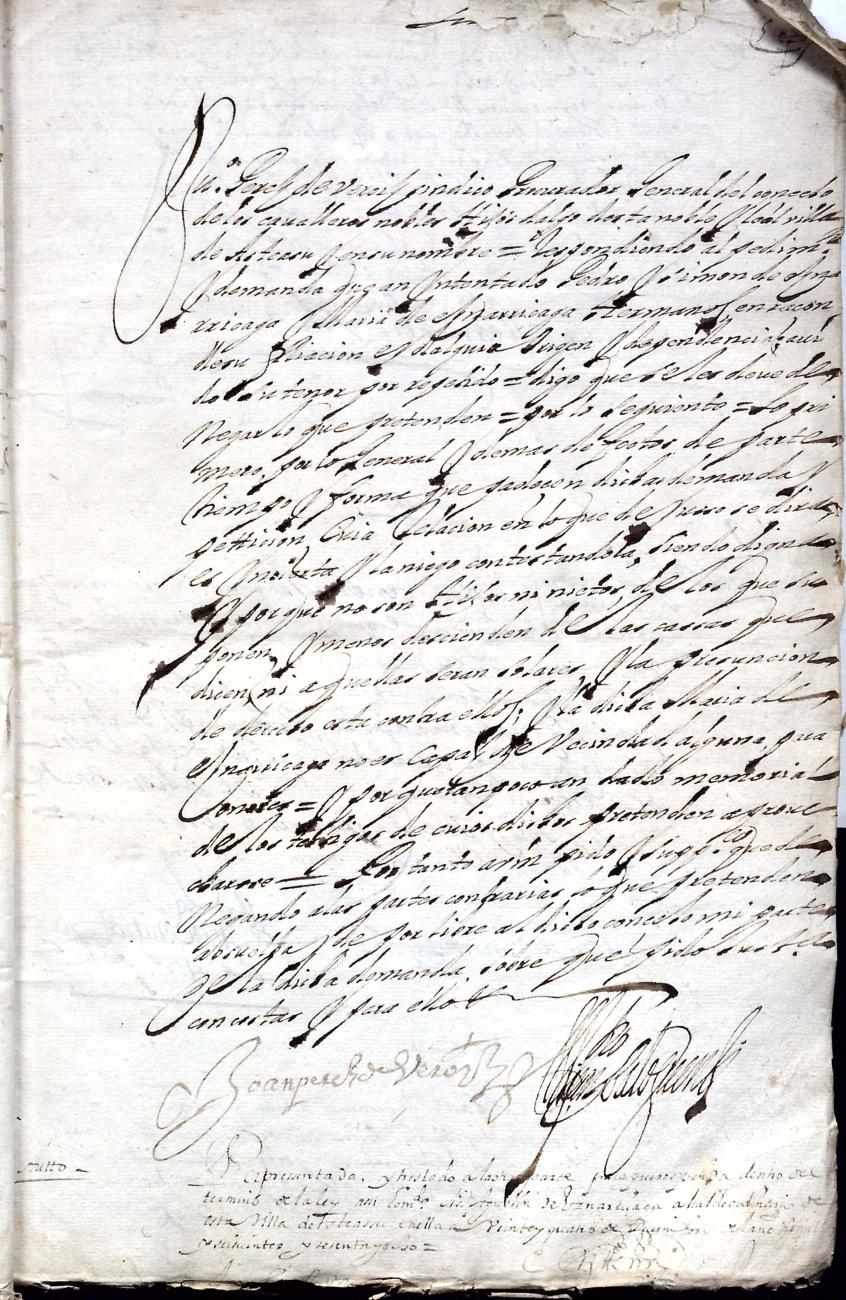 Ju.º Perez de Vereiz sindico Procurador General del conceso
de los cavalleros nobles Hijos dalgo desta noble y leal villa
de Asteasu y en su nombre = Respondiendo al pedim.to
y demanda que an Yntentado Pedro y Simon de
rricaga y Maria de Hermanos en racon
de su filiacion ydalguia origen y dependencia, avi
do su tenor por repetido = digo que se les deve de
negar lo que pretenden = por lo siguiente = Lo pri
mero, por lo General y demas defectos de parte
tiempo y forma que padecen dichas demanda y
petticion, Cuia Relacion en lo que de Yuso se dira
es Yncierta y la niego contestandola, siendo digna
y porque no son Hijos ni nietos, de los que su
ponen, y menos descienden de las cassas que
dicen, ni aquellas seran solares, y la presuncion
de derecho esta contra ellos, y la dicha Maria de
no es Capaz de Vecindad alguna, para
= y por que tanpoco an dado memorial
de los testigos de cuios dichos pretenden aprove
charsse = Por tanto a Vm pido y supp.co que de
negando a las partes contrarias, lo que pretenden
absuelba y de por libre al dicho conceso mi parte
de la dicha demanda, sobre que pido Just.ª
con costas y para ello &
Joan perez de Vereiz
Autto =
Repressentada, y treslado a la otra parte para que responda dentro del
termino de la ley assi lo m.do alcalde ordinario de
esta Villa de Asteassu en ella a Veinte y quatro de de el año de mill
y seiscientos y sesenta y ocho =